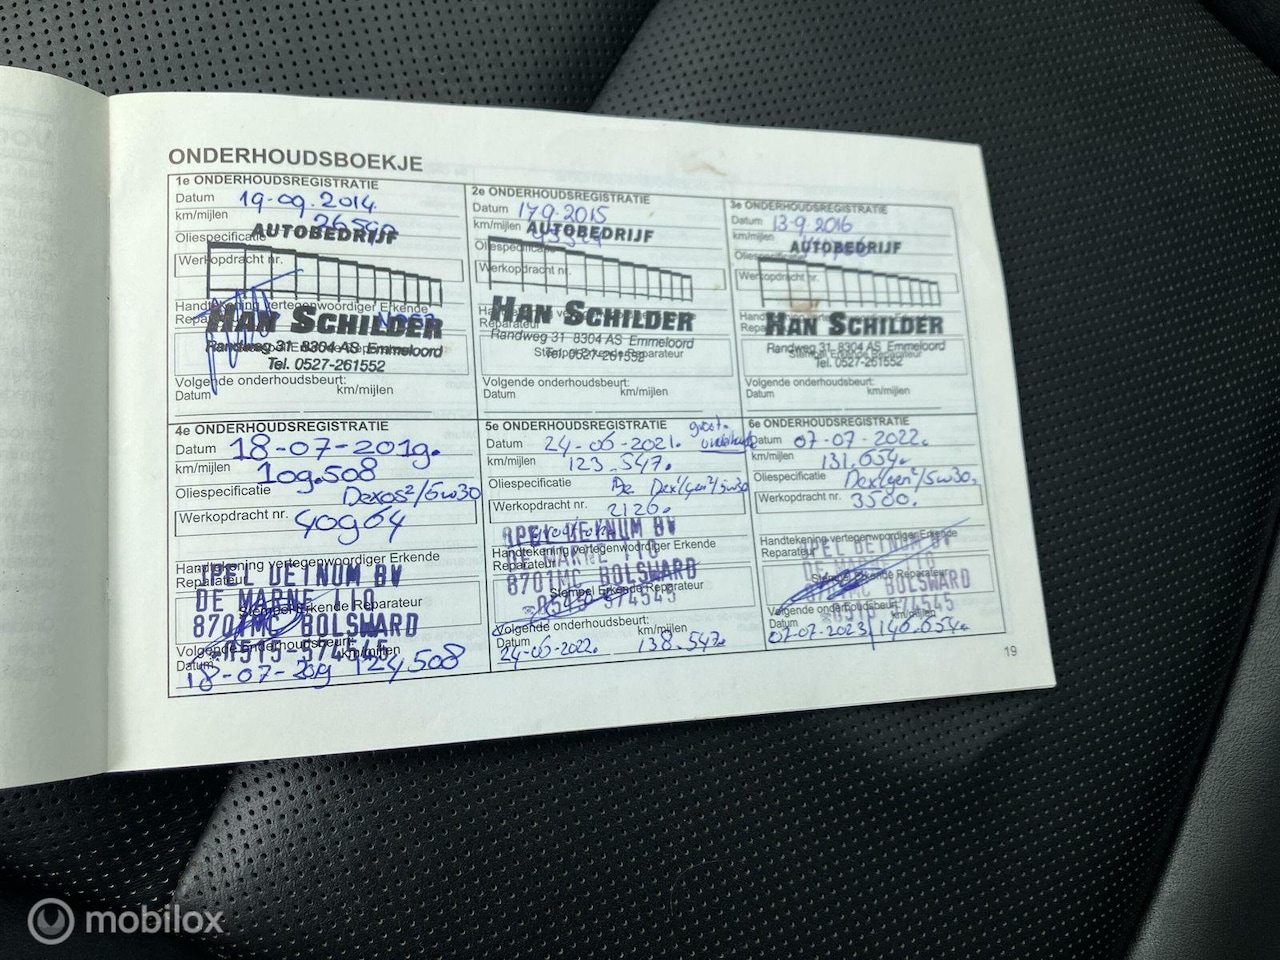 ONDERHOUDSBOEKJE
1e ONDERHOUDSREGISTRATIE
Datum 19-09-2014
km/mijlen
Oliespecificatie
AUTOBEDRIJF
Werkopdracht nr.
Handtekening vertegenwoordiger Erkende
HAN SCHILDER
Randweg 31 8304 AS Emmeloord
Tel. 0527-261552
Volgende onderhoudsbeurt:
Datum km/mijlen
2e ONDERHOUDSREGISTRATIE
Datum 17-9-2015
km/mijlen
AUTOBEDRIJF
Werkopdracht nr.
HAN SCHILDER
Reparateur
Randweg 31 8304 AS Emmeloord
Stempel Erkende Reparateur
Tel. 0527-261552
Volgende onderhoudsbeurt:
Datum km/mijlen
3e ONDERHOUDSREGISTRATIE
Datum 13-9-2016
km/mijlen
AUTOBEDRIJF
Werkopdracht nr.
HAN SCHILDER
Randweg 31 8304 AS Emmeloord
Tel. 0527-261552
Volgende onderhoudsbeurt:
Datum km/mijlen
4e ONDERHOUDSREGISTRATIE
Datum 18-07-2019.
km/mijlen 109.508
Oliespecificatie Dexos²/5w30
Werkopdracht nr. 40964
Handtekening vertegenwoordiger Erkende
Reparateur
OPEL DEINUM BV
DE MARNE 110
Stempel Erkende Reparateur
8701MC BOLSWARD
Volgende onderhoudsbeurt:
Datum km/mijlen
18-07-2019 124.508
5e ONDERHOUDSREGISTRATIE
groot.
Datum 24-06-2021.
km/mijlen 123.547.
Oliespecificatie Dex¹/gen²/5w30
Werkopdracht nr. 2126.
OPEL DEINUM BV
Handtekening vertegenwoordiger Erkende
Reparateur
DE MARNE 110
8701MC BOLSWARD
Stempel Erkende Reparateur
Volgende onderhoudsbeurt:
Datum km/mijlen
24-06-2022. 138.547.
6e ONDERHOUDSREGISTRATIE
Datum 07-07-2022.
km/mijlen 131.654.
Oliespecificatie Dex¹/gen²/5w30.
Werkopdracht nr. 3500.
Handtekening vertegenwoordiger Erkende
Reparateur
OPEL DEINUM BV
Stempel Erkende Reparateur
8701MC BOLSWARD
Volgende onderhoudsbeurt:
Datum km/mijlen
07-07-2023 / 146.654.
19
mobilox